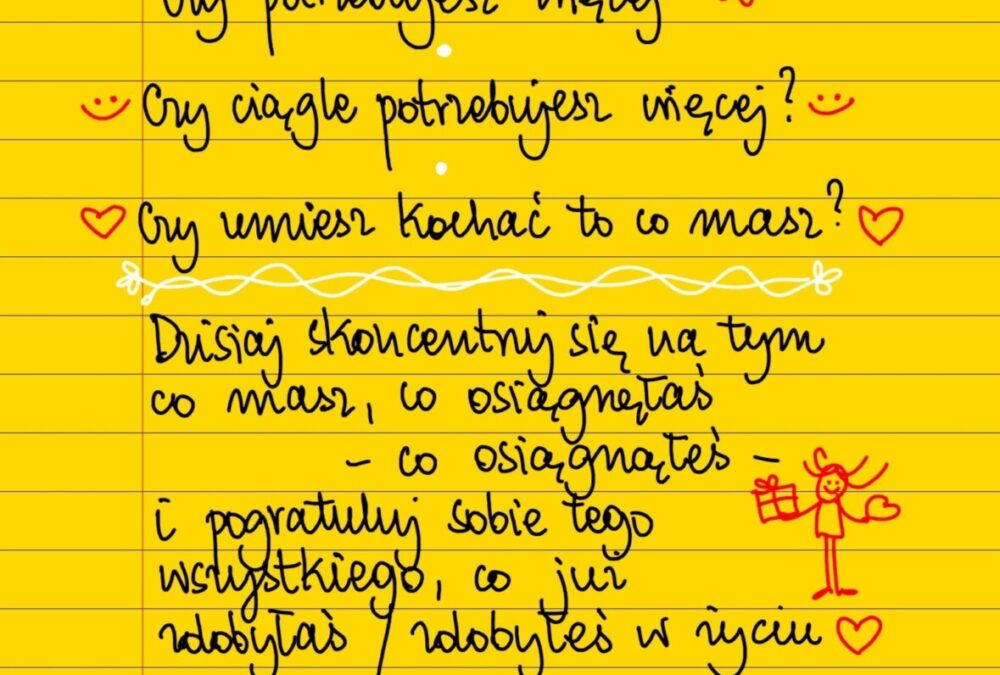 Czy potrzebujesz więcej
Czy ciągle potrzebujesz więcej?
Czy umiesz kochać to co masz?
Dzisiaj skoncentruj się na tym
co masz, co osiągnęłaś
- co osiągnąłeś -
i pogratuluj sobie tego
wszystkiego, co już
zdobyłaś / zdobyłeś w życiu